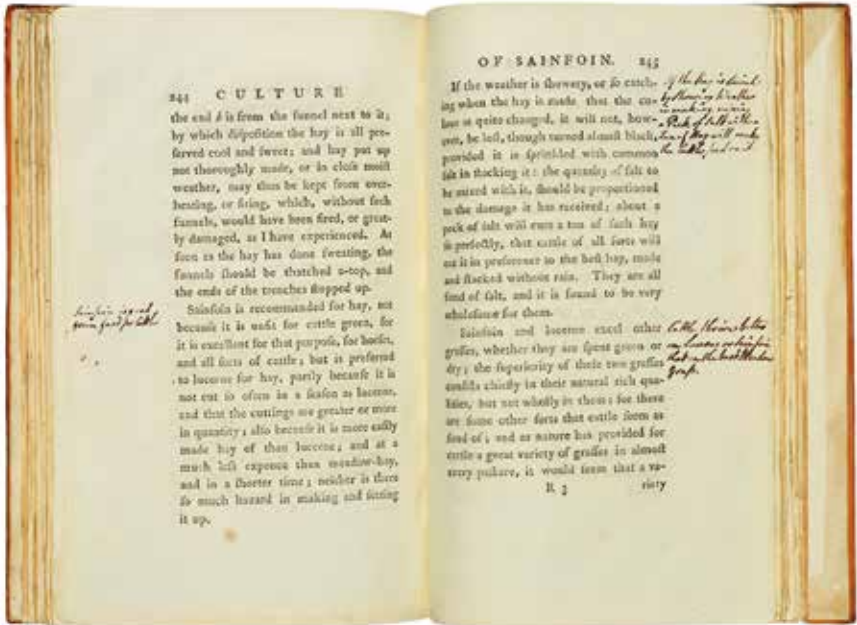 244 CULTURE
the end b is from the funnel next to it;
by which disposition the hay is all pre-
served cool and sweet; and hay put up
not thoroughly made, or in close moist
weather, may thus be kept from over-
heating, or firing, which, without such
funnels, would have been fired, or great-
ly damaged, as I have experienced. As
soon as the hay has done sweating, the
funnels should be thatched a-top, and
the ends of the trenches stopped up.
Sainfoin is recommended for hay, not
because it is unfit for cattle green, for
it is excellent for that purpose, for horses,
and all sorts of cattle; but is preferred
to lucerne for hay, partly because it is
not cut so often in a season as lucerne,
and that the cuttings are greater or more
in quantity; also because it is more easily
made hay of than lucerne; and at a
much less expence than meadow-hay,
and in a shorter time; neither is there
so much hazard in making and setting
it up.
Sainfoin is good
green food for cattle
OF SAINFOIN. 245
If the weather is showery, or so catch-
ing when the hay is made that the co-
lour is quite changed, it will not, how-
ever, be lost, though turned almost black,
provided it is sprinkled with common
salt in stacking it: the quantity of salt to
be mixed with it, should be proportioned
to the damage it has received; about a
peck of salt will cure a ton of such hay
so perfectly, that cattle of all sorts will
eat it in preference to the best hay, made
and stacked without rain. They are all
fond of salt, and it is found to be very
wholesome for them.
Sainfoin and lucerne excel other
grasses, whether they are spent green or
dry; the superiority of these two grasses
consists chiefly in their natural rich qua-
lities, but not wholly in them; for there
are some other sorts that cattle seem as
fond of; and as nature has provided for
cattle a great variety of grasses in almost
every pasture, it would seem that a va-
R 3 riety
If the Hay is
by Showery Weather
in making
a Peck of Salt with a
Ton of Hay will make
the Cattle feed on it
Cattle thrive better
on Lucerne or Sainfoin
than on the best Meadow
Grass.